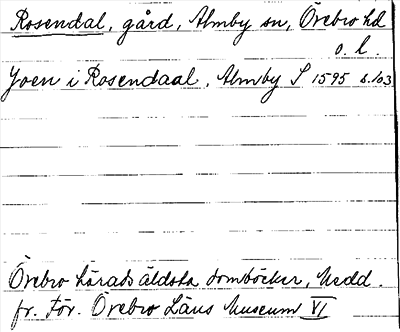 Rosendal, gård, Almby sn, Örebro hd
o. l.
Joen i Rosendaal, Almby S 1595 s. 103
Örebro härads äldsta domböcker, Medd.
fr. För. Örebro Läns Museum VI